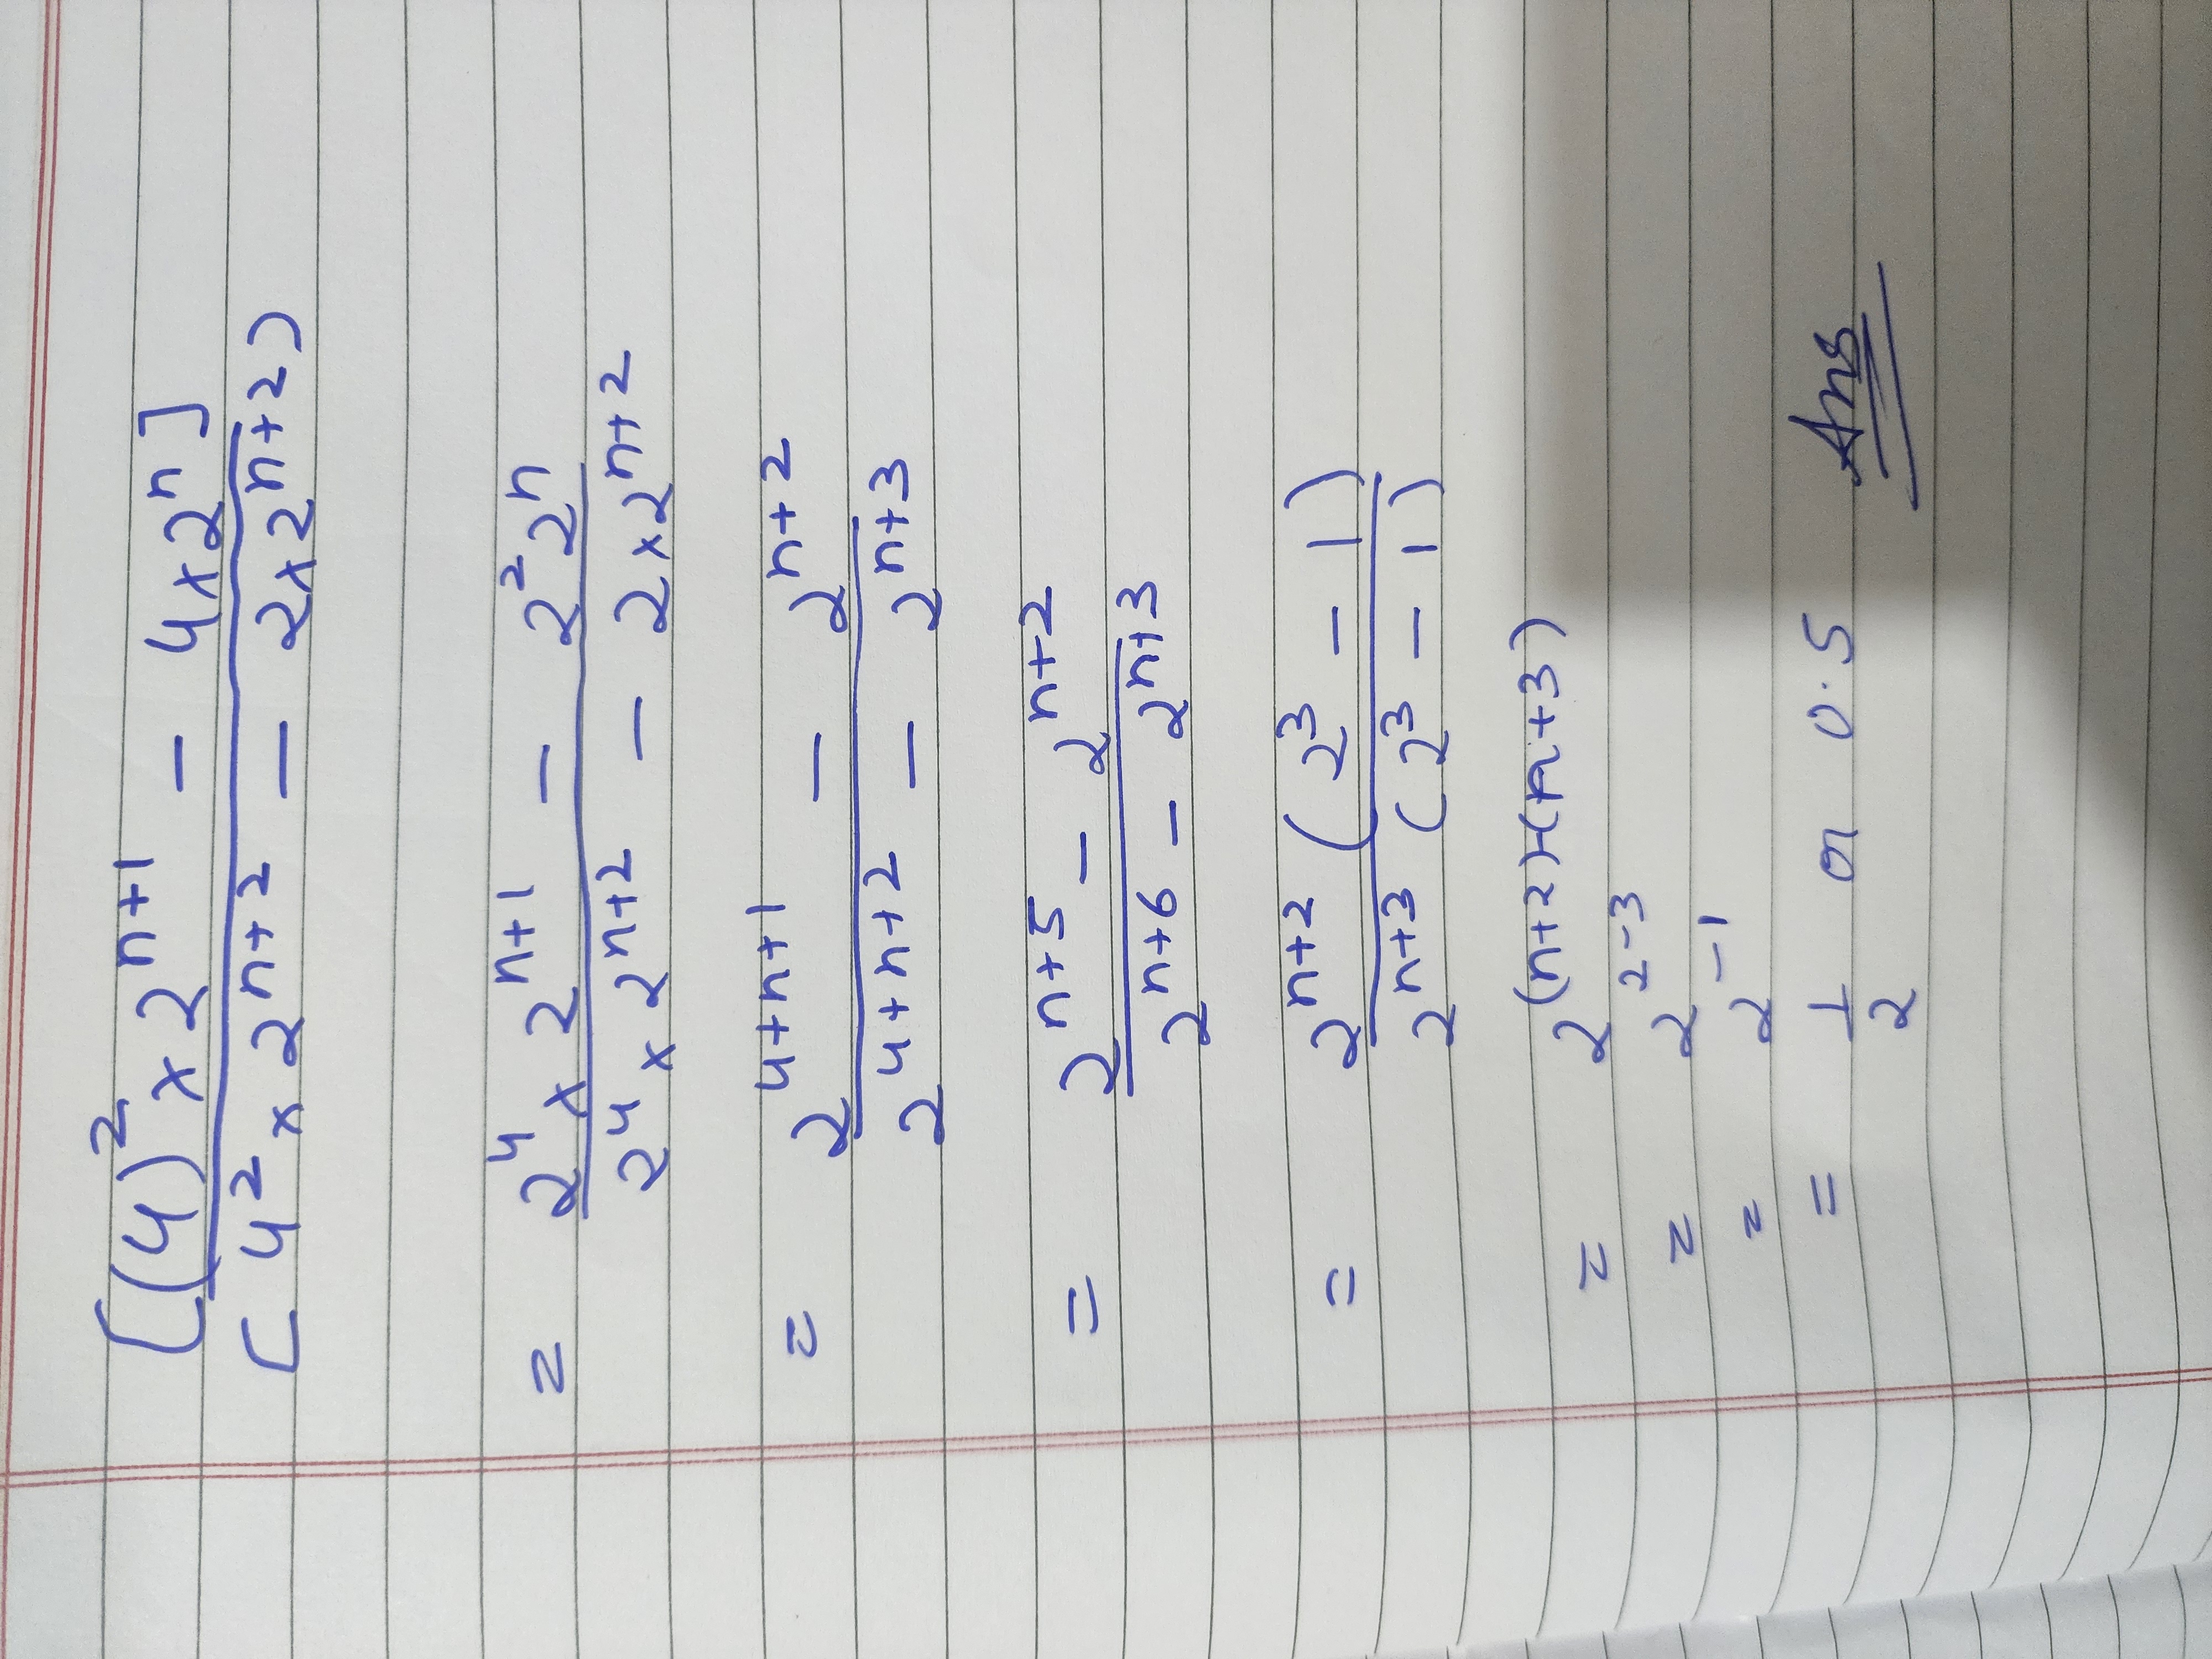 [(4)² × 2ⁿ⁺¹ − 4×2ⁿ]
[4² × 2ⁿ⁺² − 2×2ⁿ⁺²)
= 2⁴ × 2ⁿ⁺¹ − 2² 2ⁿ
2⁴ × 2ⁿ⁺² − 2×2ⁿ⁺²
= 2⁴⁺ⁿ⁺¹ − 2ⁿ⁺²
2⁴⁺ⁿ⁺² − 2ⁿ⁺³
= 2ⁿ⁺⁵ − 2ⁿ⁺²
2ⁿ⁺⁶ − 2ⁿ⁺³
= 2ⁿ⁺² (2³ − 1)
2ⁿ⁺³ (2³ − 1)
= 2⁽ⁿ⁺²⁾⁻⁽ⁿ⁺³⁾
= 2²⁻³
= 2⁻¹
= 1/2 or 0.5 Ans